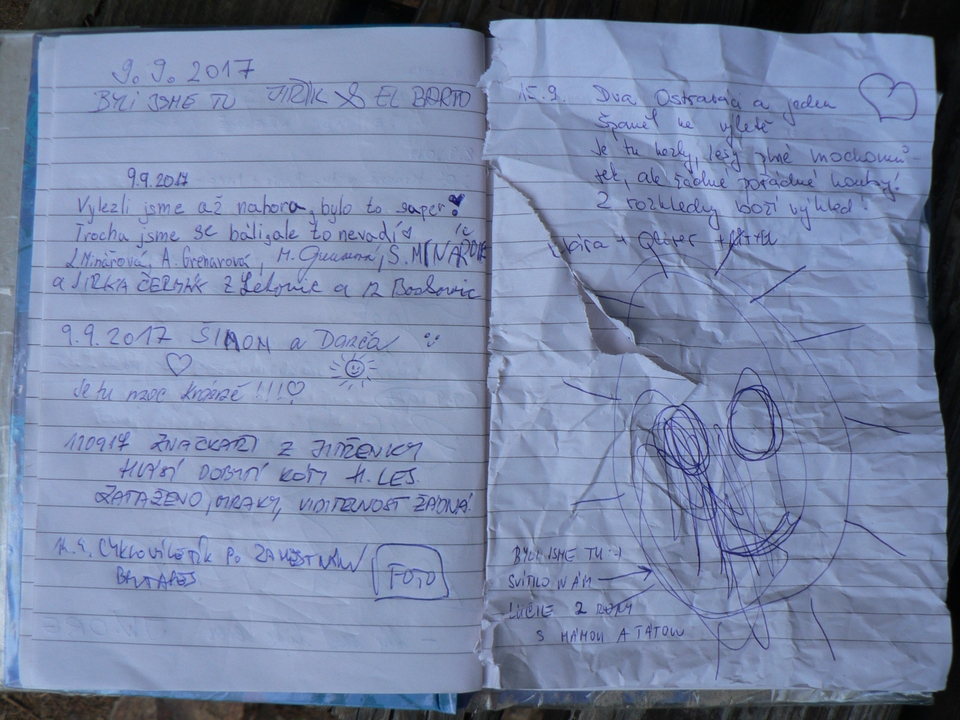 9.9. 2017
BYLI JSME TU JIŘÍK & EL BARTO
9.9.2017
Vylezli jsme až nahoru, bylo to super!
Trochu jsme se báli, ale to nevadí
J. Minářová, A. Grenarová, M. S. MINAŘÍK
a JIRKA ČERMÁK z a z
9.9.2017 ŠIMON a Danča
Je tu moc krásně !!!
110917 ZNAČKAŘI Z JITŘENKY
HLÁSÍ DOBYTÍ KÓTY H. LES.
ZATAŽENO, MRAKY, VIDITELNOST ŽÁDNÁ.
Cyklovýletík po
FOTO
15.9. Dva Ostraváci a jeden
španěl na výletě
Je tu hezky, lesy plné mochomů-
rek, ale žádné pořádné houby!
Z rozhledny boží výhled!
+ Oliver +
BYLI JSME TU :-)
SVÍTILO NÁM
LUCIE 2 ROKY
S MÁMOU A TÁTOU